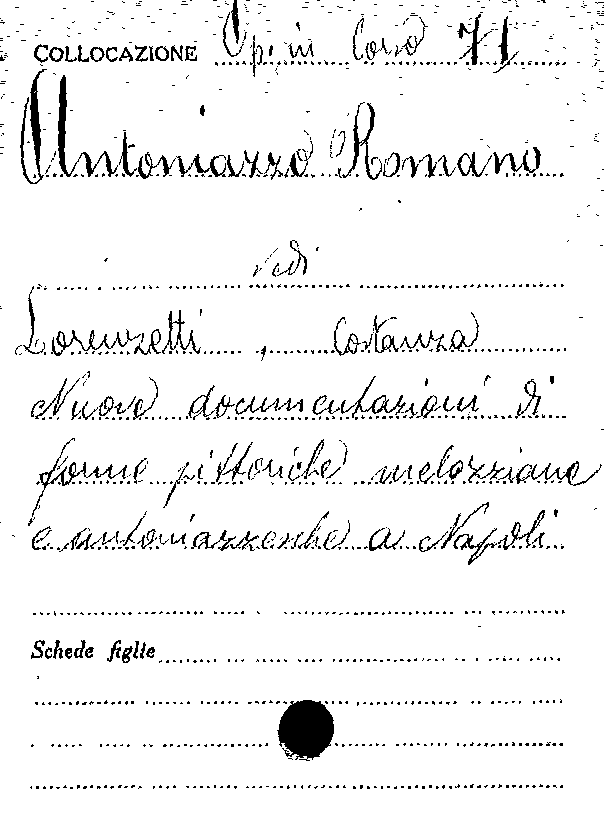 COLLOCAZIONE Op. in Corso 71
Antoniazzo Romano
vedi
Lorenzetti, Costanza
Nuove documentazioni di
forme pittoriche melozziane
e antoniazzesche a Napoli
Schede figlie